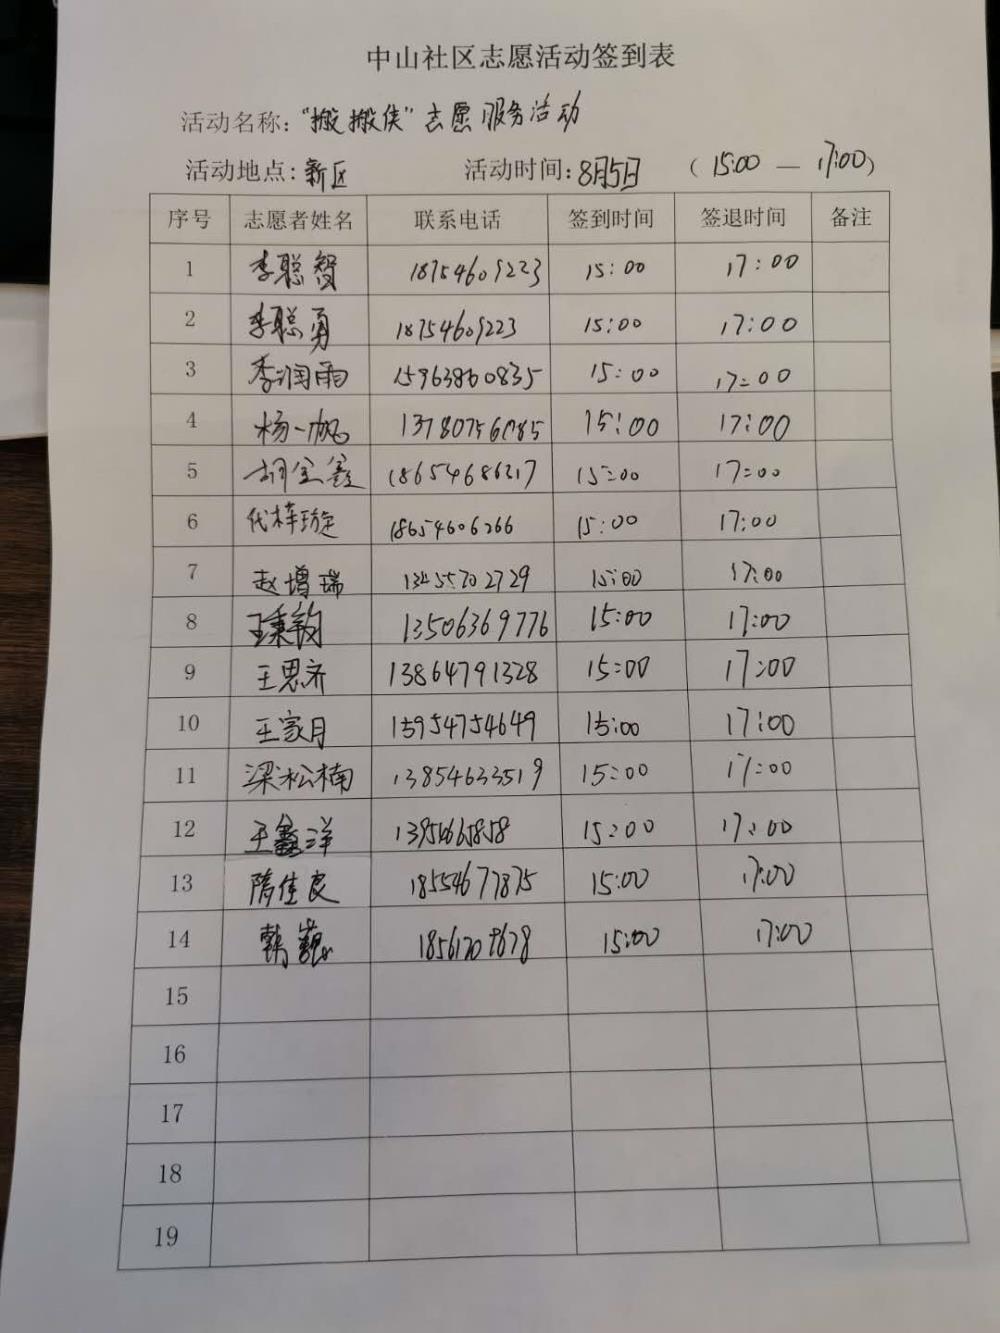 中山社区志愿活动签到表
活动名称："搬搬侠"志愿服务活动
活动地点：新区 活动时间：8月5日 （15:00 — 17:00）
序号 志愿者姓名 联系电话 签到时间 签退时间 备注
1 李聪智 18754609223 15:00 17:00
2 李聪勇 18754609223 15:00 17:00
3 李润雨 15963860835 15:00 17:00
4 杨一帆 13780756085 15:00 17:00
5 胡金鑫 18654686217 15:00 17:00
6 代梓璇 18654606266 15:00 17:00
7 赵增瑞 15:00 17:00
8 王秉钧 13506369776 15:00 17:00
9 王思齐 13864791328 15:00 17:00
10 王家月 15954754649 15:00 17:00
11 梁松楠 13854633519 15:00 17:00
12 王鑫洋 15:00 17:00
13 隋佳良 18554677875 15:00 17:00
14 韩巍 15:00 17:00
15
16
17
18
19